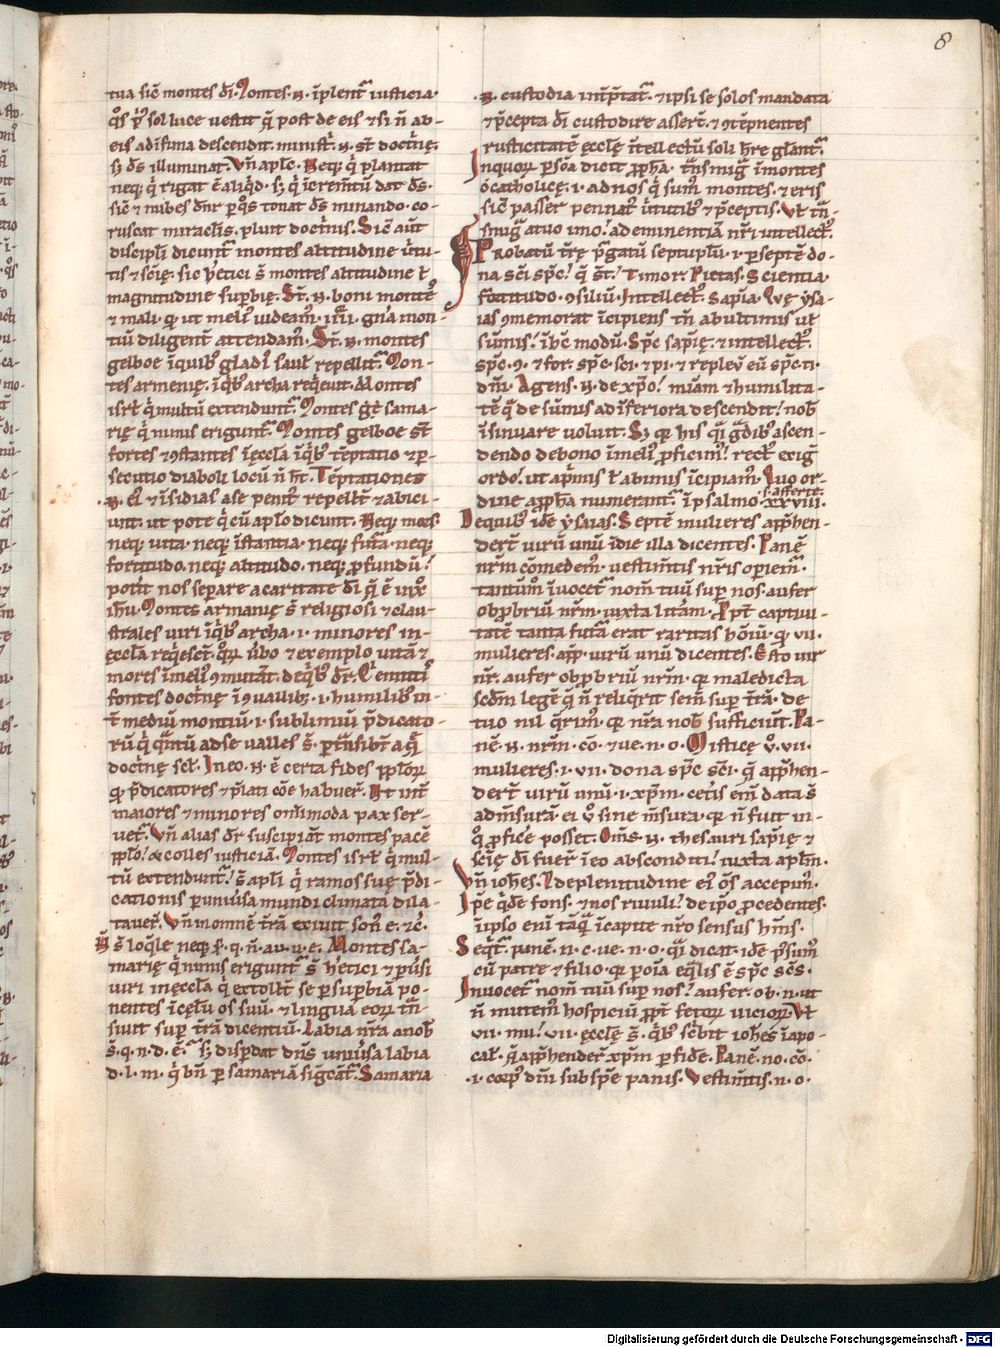 8
tua sic̄ montes dī. Montes .n. īplent᷑ iusticia.
q̊s p̓ sol luce uestit q̄ post de eis & si n̄ ab-
eis ad īfima descendit. ministr̄ .n. st̄ doctrinę.
sꝫ ds̄ illuminat. Vn̄ apl̄c. Neqꝫ q̓ plantat
neqꝫ q̓ rigat ē aliq̓d. sꝫ q̓ īcrem̄tū dat ds̄.
sic̄ & nubes dn̄r p̱ q̊s tonat ds̄ minando. co-
ruscat miraclis. pluit doctrinis. Sic̄ aūt
discipl̓i dicunt᷑ montes altitudine ūtu-
tis & scīę. sic h̓etici s̄ montes altitudine ł
magnitudine sup̱bię. St̄ .n. boni montes
& mali. q̱ ut meli᷒ uideam᷒. iiii. gn̄a mon-
tiū diligent̄ attendam᷒. St̄ .n. montes
gelboe īquib᷒ gladi᷒ saul repellit᷑. Mon-
tes armenię. īq̓b᷒ archa req̓euit. Montes
isrl̄ q̓ multū extendunt᷑. Montes s̄t sama-
rię q̓ nimis erigunt᷑. Montes gelboe st̄
fortes & ꝯstantes īęccl̄a īq̓b᷒ tēptatio & p̱-
secutio diaboli locū n̄ h̄t. Tēptationes
.n. ei᷒ & īsidias a se penit᷒ repellt̄ & abici-
unt. ut pote q̓ cū apl̄o dicunt. Neqꝫ mors.
neqꝫ uita. neqꝫ īstantia. neqꝫ fut᷑a. neqꝫ
fortitudo. neqꝫ altitudo. neqꝫ ꝓfundū.
pot̓it nos separe a caritate dī q̄ ē inxp̄o
ih̄u. Montes armanię s̄ religiosi & clau-
strales uiri īq̓b᷒ archa .i. minores in-
ęccl̄a req̓esct̄. q̊ꝝ ūbo & exemplo uitā &
mores īmeli᷒ ꝯmutāt. de q̓b᷒ dr̄. Q̓ emittis
fontes doctrinę īꝯuallib᷒ .i. humilib᷒ in-
t̄ mediū montiū .i. sublimiū p̄dicato-
rū q̓ q̄m̄tū ad se ualles s̄. p̱tn̄sib̄t aq̄
doctrinę scl̄. In eo .n. ē certa fides pp̄loꝝ
q̱ p̄dicatores & p̄lati cōe habuer̄. Et int̄
maiores & minores omīmoda pax ser-
uet᷑. Vn̄ alias dr̄ suscipiāt montes pacē
pp̄lo. & colles iusticiā. Montes isrl̄ q̓ mul-
tū extendunt᷑. s̄ apl̓i q̓ ramos suę p̄di-
cationis p̱ uniūsa mundi climata dila-
tauer̄. Vn̄ in omnē tr̄ā exiuit son᷒ e. &c̄.
N̄ s̄ loq̄le neqꝫ s̄. q. n̄. au. u. e. Montes sa-
marię q̓ nimis erigunt᷑ s̄ h̓etici & p̱uūsi
uiri inęccl̄a q̓ extollt̄ se p̱ sup̱biā po-
nentes īcęlū os suū. & lingua eoꝝ tn̄-
siuit sup̱ tr̄ā dicentiū. Labia nr̄a a nob᷒
s̄. q. n. d. ē. sꝫ disp̱dat dn̄s uniūsa labia
d. l. m. q̓ bn̄ p̱ samariā sig̓cāt᷑. Samaria
.n. custodia int̓p̄tat᷑. & ipsi se solos mandata
& p̄cepta dī custodire asser̄t. & ꝯtēpnentes
rusticitatē ęccl̄ę īntellectū soli h̄re gl̄ant᷑.
Inquoꝝ p̱sōa dicit ꝓph̄a. tn̄smig᷑ īmontes
o catholicę .i. ad nos q̓ sum᷒ montes. & eris
sic̄ passer pennat᷒ ūtutib᷒ & p̄ceptis. Vt tn̄-
smig᷑ a tuo uno. ad eminentiā nr̄i intellect᷒.
Probatū tr̄ę p̱gatū septuplū .i. p̱ septē do-
na sc̄i spc̄. q̄ st̄. Timor Pietas. Scientia.
fortitudo. ꝯsiliū. Intellect᷒. Sapīa. Quę ysa-
ias ꝯmemorat īcipiens tn̄ ab ultimis ut
sūmis. ībc̄ modū. Spc̄ sapīę. & intellect᷒.
spc̄ .ꝯ. & for. spc̄. sci. & pi. & replev̄ eū spc̄. ti.
dn̄i. Agens .n. de xp̄o. miām & humilita-
tē q̄ de sūmis ad īferiora descendit. nob᷒
īsinuare uoluit. Sꝫ q̱ his q̄i g̓dib᷒ ascen-
dendo de bono īmeli᷒ proficim᷒. rect᷒ exig̓
ordo. ut ap̓mis ł ab imis īcipiam᷒. Quo or-
dine a ꝓph̄a numerant᷑. īpsalmo .xxviii.
s. afferte.
De quib᷒ idē ysaias. Septē mulieres app̄hen-
der̄t uirū unū īdie illa dicentes. Panē
nr̄m cōmedem᷒. uestim̄tis nr̄is operiem᷑.
tantūm īuocet᷑ nom̄ tuū sup̱ nos. aufer
obp̱briū nr̄m. iuxta litām. Ppt̄ captiui-
tatē tanta fut᷑a erat raritas hōiū. q̱ .vii.
mulieres. app̄. uirū unū dicentes. Esto uir
nr̄. aufer obp̱briū nr̄m. q̱ maledicta
scdm̄ legē q̄ n̄ reliq̓rit sem̄ sup̱ tr̄ā. de
tuo nil q̄rim᷒. q̱ nr̄a nob᷒ sufficiūt. Pa-
nē .n. nr̄m. cō. & ue. n. o. Misticę ů. vii.
mulieres .i. vii. dona spc̄ sc̄i. q̄ app̄hen-
der̄t uirū unū .i. xp̄m. cet̓is enī data s̄
ad m̄surā. ei ů sine m̄sura. q̱ n̄ fuit in-
q̊ ꝓfice᷑ posset. Om̄s .n. thesauri sapīę &
scīę dī fuer̄ īeo absconditi. iuxta apl̄m.
Vn̄ ioh̄es. De plenitudine ei᷒ ōs accepim᷒.
Ipse q̓dē fons. & nos riuuli. de ip̄o procedentes.
īipso enī tāq̄ īcapite nr̄o sensus hīns.
Seq̓t᷑. panē. n. c. ue. n. o. q̄i dicat. idē p̱sum᷒
cū patre & filio. q̱ poīa eq̄lis ē spc̄ sc̄s.
Inuocet᷑ nom̄ tuū sup̱ nos. aufer. ob. n. ut
n̄ mutem᷒ hospiciū ꝓpt̄ fetoꝝ uicioꝝ. Vł
vii. mu. vii. ęccl̄ę s̄. q̓b᷒ sc̓bit ioh̄es īapo-
cal̄. q̄ app̄hender̄ xp̄m p̱ fidē. Panē. no. cō.
.i. corp᷒ dn̄i sub spē panis. Vestim̄tis. n. o.
Digitalisierung gefördert durch die Deutsche Forschungsgemeinschaft - DFG